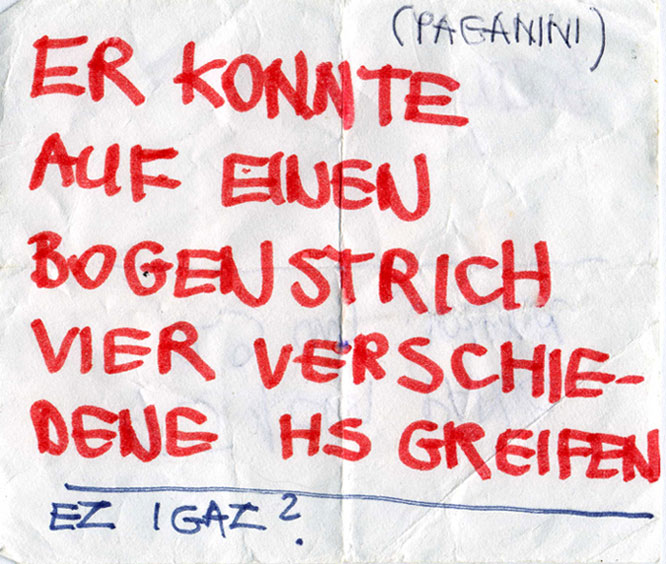 (PAGANINI)
ER KONNTE
AUF EINEN
BOGENSTRICH
VIER VERSCHIE-
DENE HS GREIFEN
EZ IGAZ?